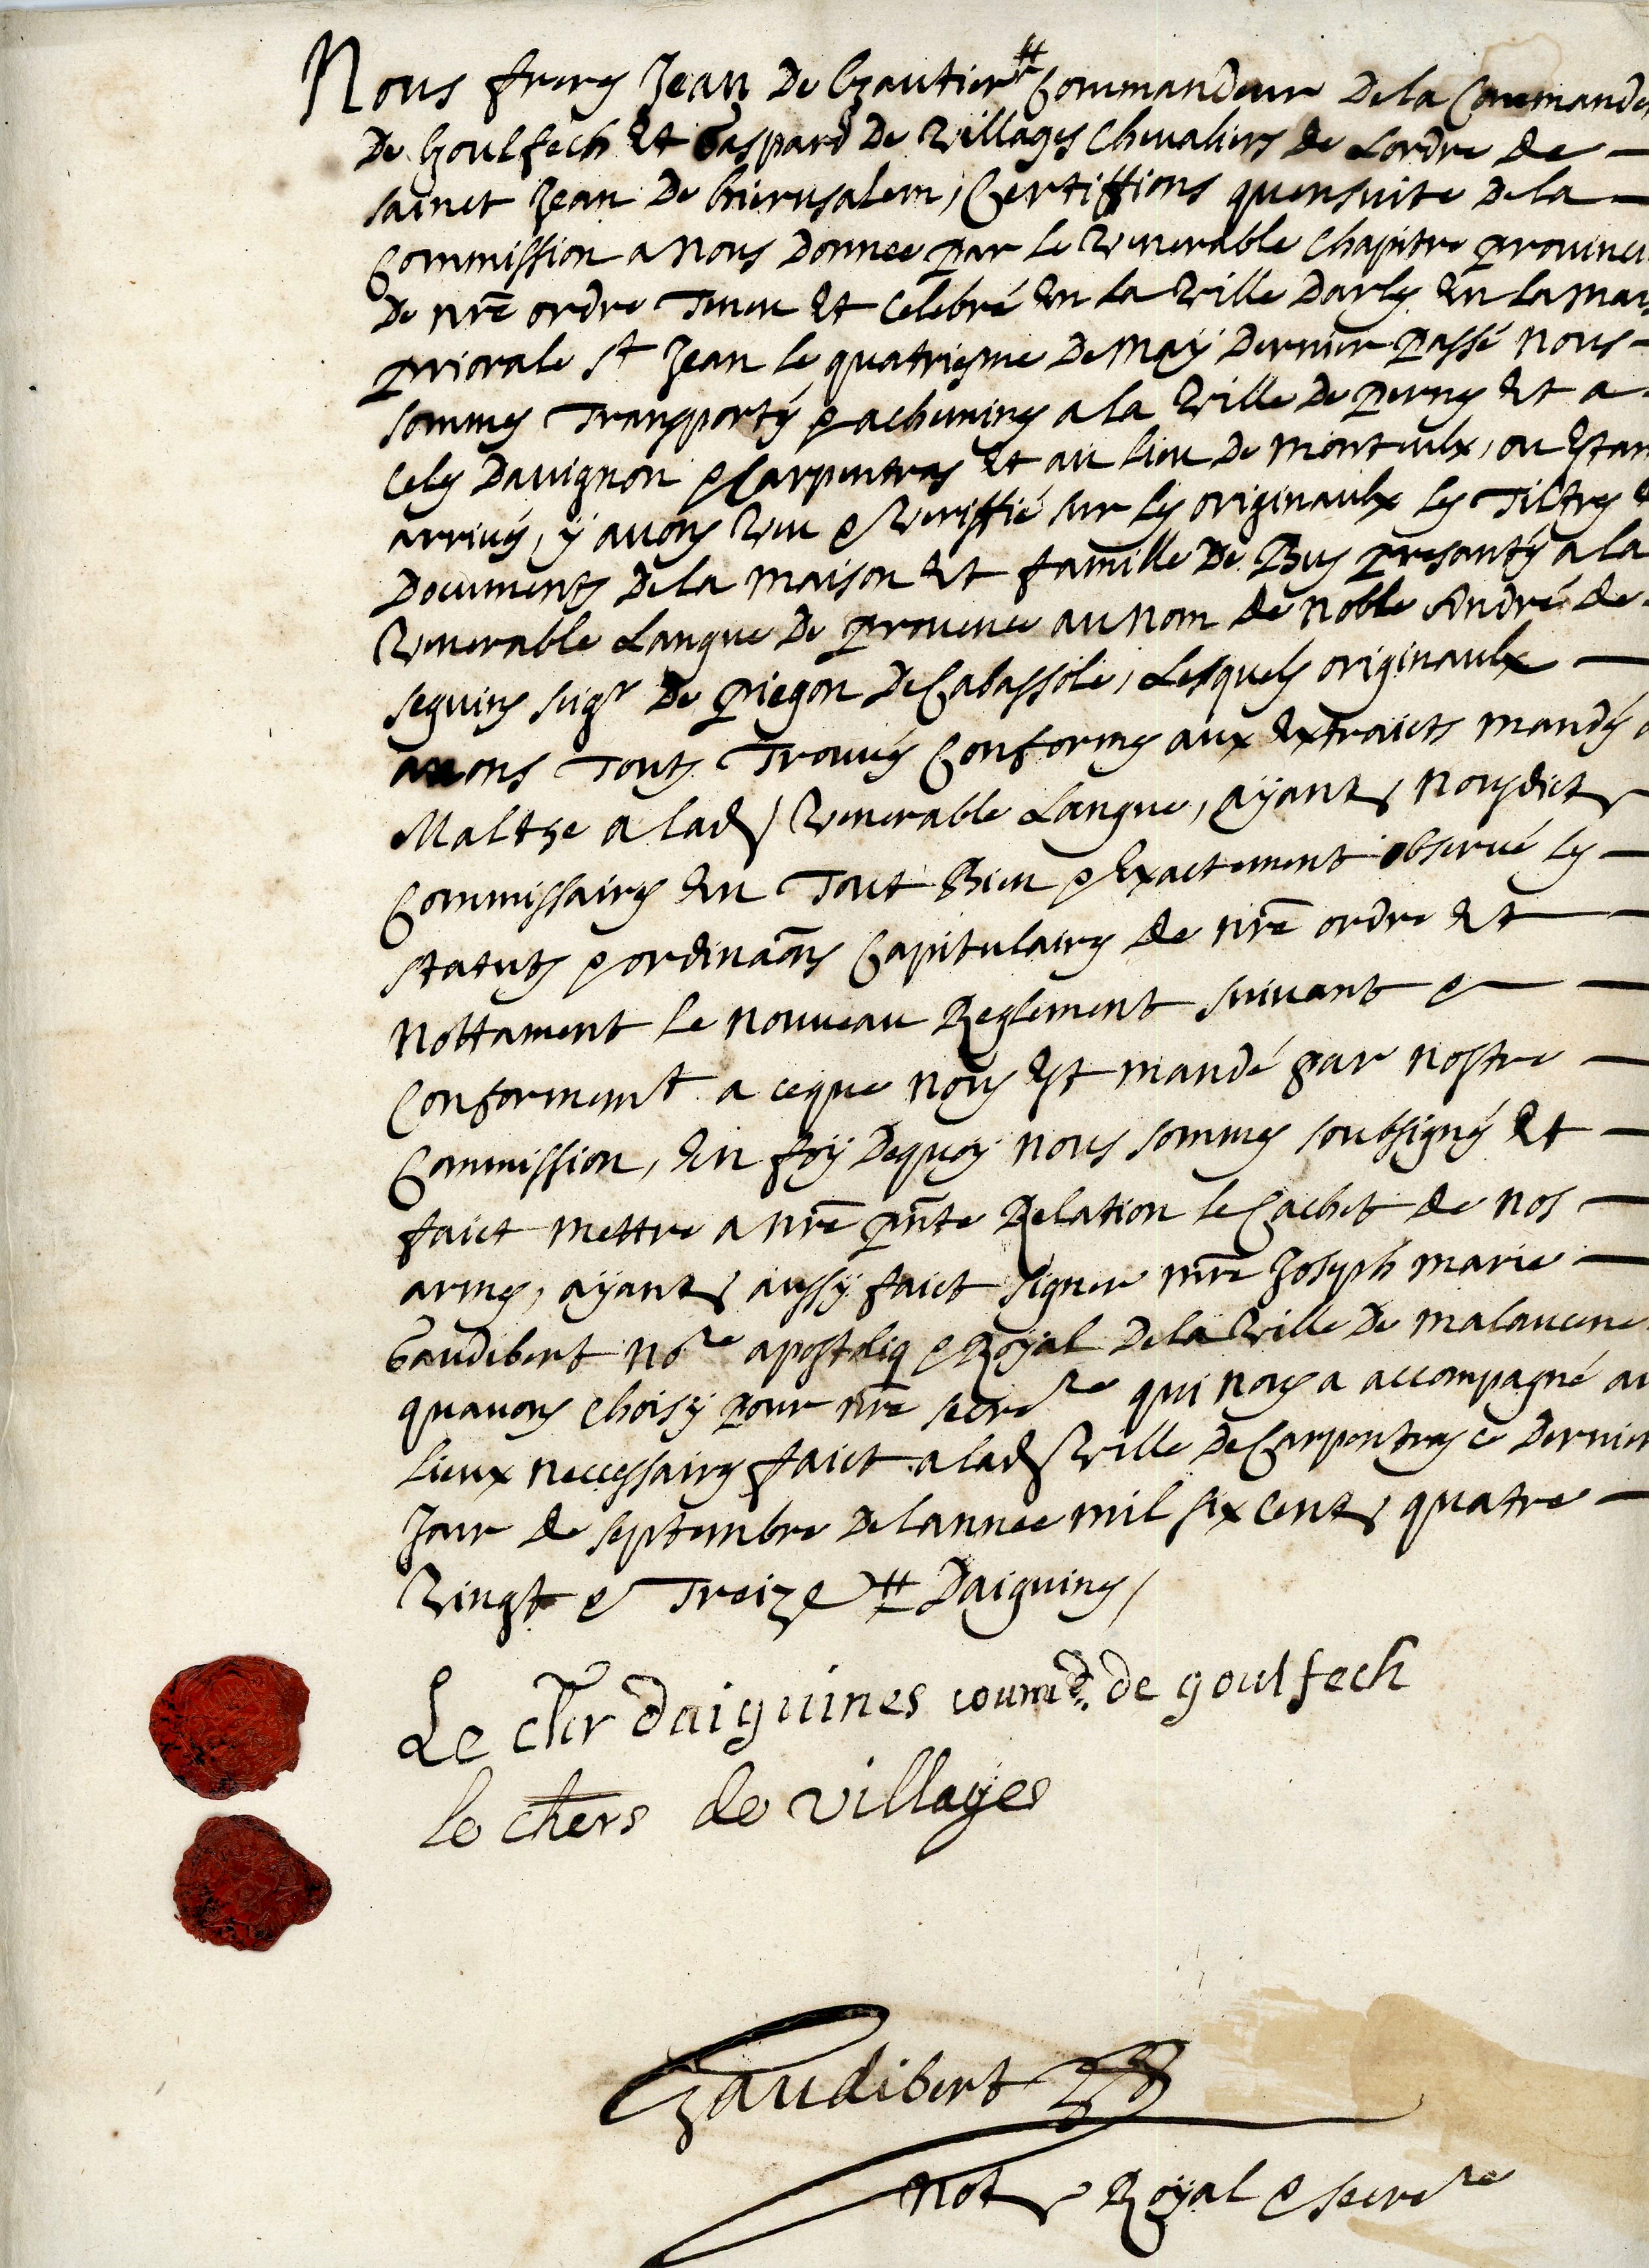 Nous freres Jean De Gautier # Commandeur De la Commande
De Goulfech Et Gaspard De Villages Chevaliers de Lordre de
sainct Jean De hierusalem, Certiffions quensuite De la
Commission a Nous Donnee par le Venerable Chapitre prouinci
De nre ordre Tenu Et Celebré En La Ville Darles En La mais
priorale st Jean le quatriesme De may Dernier passé nous
sommes Transportés & acheminés a la Ville De pernes Et a
Celes Dauignon & Carpentras Et au lieu De monteulx, ou Estan
arriués, y auons Veu & Veriffié sur les originaulx les Tiltres &
Documents De la maison Et famille De Bus presantés a la
Venerable Langue De prouence au nom de noble André de
seguins seigr De piegon De Cabassole, Lesquels originaulx
auons Touts Trouués Conformes aux Extraicts mandés a
Malthe a lad Venerable Langue, ayants nousdicts
Commissaires En Tout Bien & Exactement obserué les
statuts & ordinaons Capitulaires de nre ordre Et
nottament le nouveau Reglement suivant &
Conforment a ceque nous Est mandé par nostre
Commission, En foy Dequoy nous sommes soubsignés Et
faict mettre a nre pnte Relation le Cachet de nos
armes, ayants aussy faict signer mre Joseph marie
Gaudibert nore apostoliq & Royal De la Ville De malaucene
quauons Choisy pour nre secrere qui nous a accompagné au
lieux necessaires faict a lad Ville De Carpentras ce Dernier
Jour de septembre De lannee mil six cents quatre
Vingt & Treize # Daiguines
Le cher daiguines comdr. de goulfech
le chers de villages
Gaudibert
Not Royal & secrere